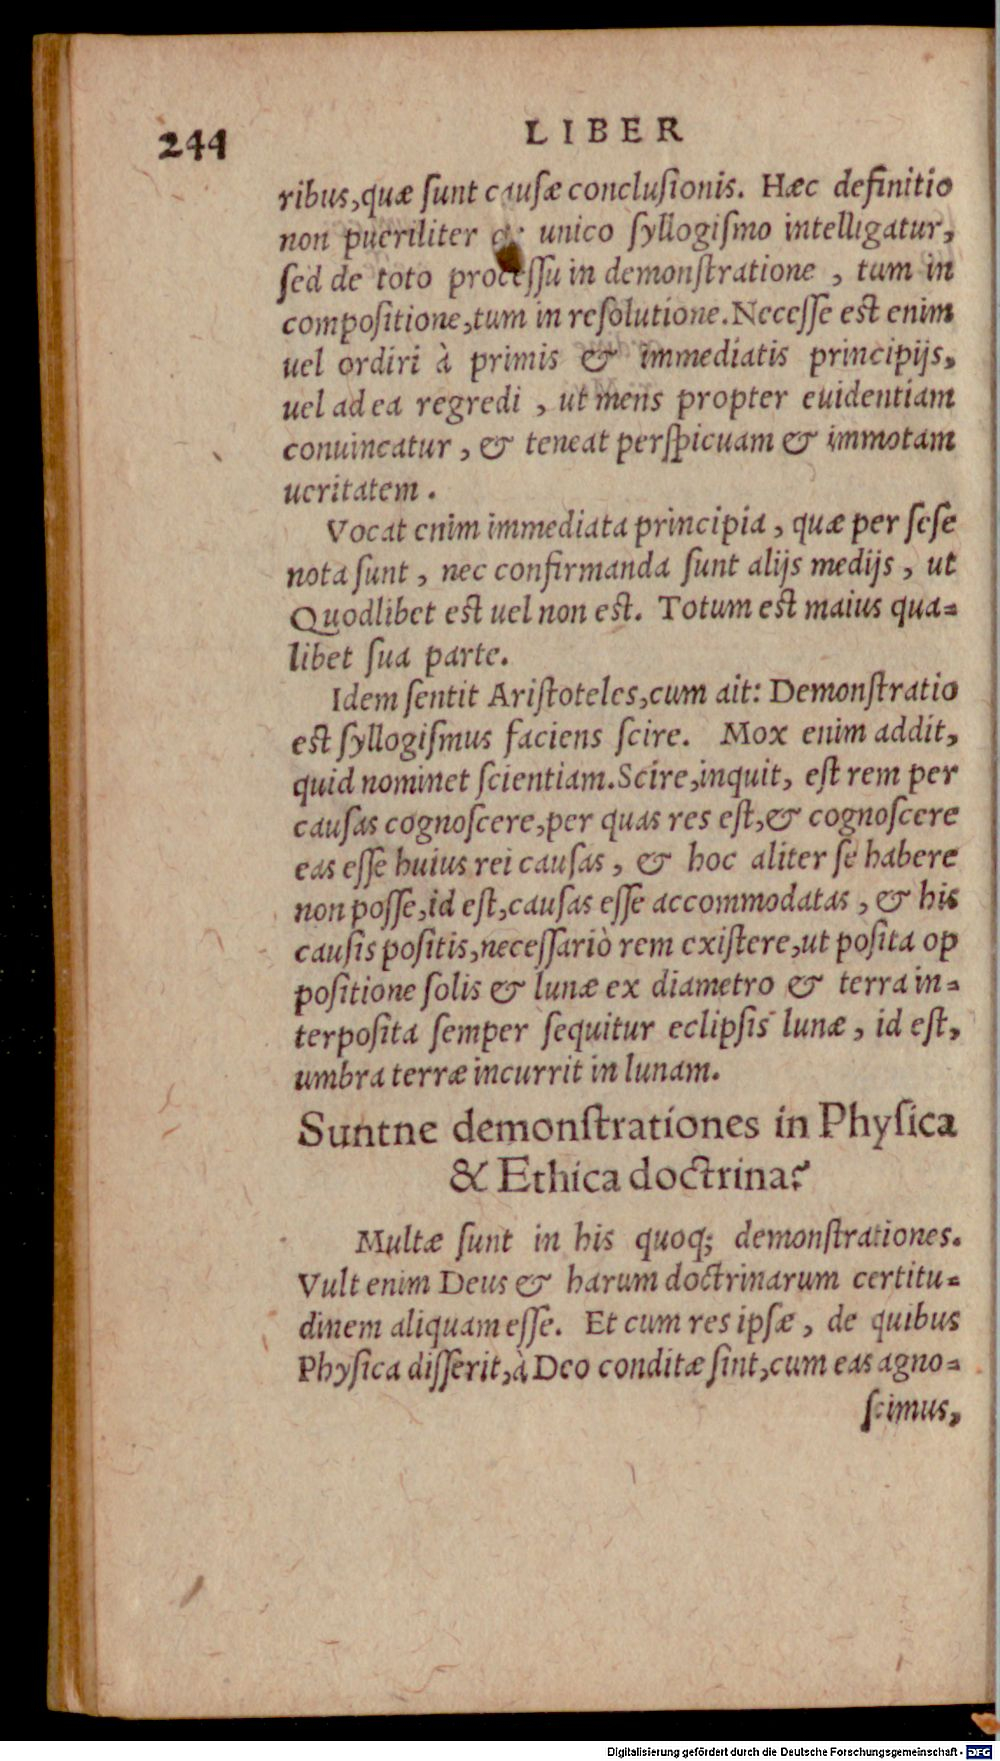 244
LIBER
ribus, quæ ſunt cauſæ concluſionis. Hæc definitio
non pueriliter unico ſyllogiſmo intelligatur,
ſed de toto proceſſu in demonſtratione, tum in
compoſitione, tum in reſolutione. Neceſſe est enim
uel ordiri à primis & immediatis principijs,
uel ad ea regredi, ut mens propter euidentiam
conuincatur, & teneat perſpicuam & immotam
ueritatem.
Vocat enim immediata principia, quæ per ſeſe
nota ſunt, nec confirmanda ſunt alijs medijs, ut
Quodlibet est uel non est. Totum est maius qua-
libet ſua parte.
Idem ſentit Ariſtoteles, cum ait: Demonſtratio
est ſyllogiſmus faciens ſcire. Mox enim addit,
quid nominet ſcientiam. Scire, inquit, eſt rem per
cauſas cognoſcere, per quas res eſt, & cognoſcere
eas eſſe huius rei cauſas, & hoc aliter ſe habere
non poſſe, id eſt, cauſas eſſe accommodatas, & his
cauſis poſitis, neceſſariò rem exiſtere, ut poſita op
poſitione ſolis & lunæ ex diametro & terra in-
terpoſita ſemper ſequitur eclipſis lunæ, id eſt,
umbra terræ incurrit in lunam.
Suntne demonſtrationes in Phyſica
& Ethica doctrina?
Multæ ſunt in his quoq; demonſtrationes.
Vult enim Deus & harum doctrinarum certitu-
dinem aliquam eſſe. Et cum res ipſæ, de quibus
Phyſica diſſerit, à Deo conditæ ſint, cum eas agno-
ſcimus,
Digitalisierung gefördert durch die Deutsche Forschungsgemeinschaft - DFG